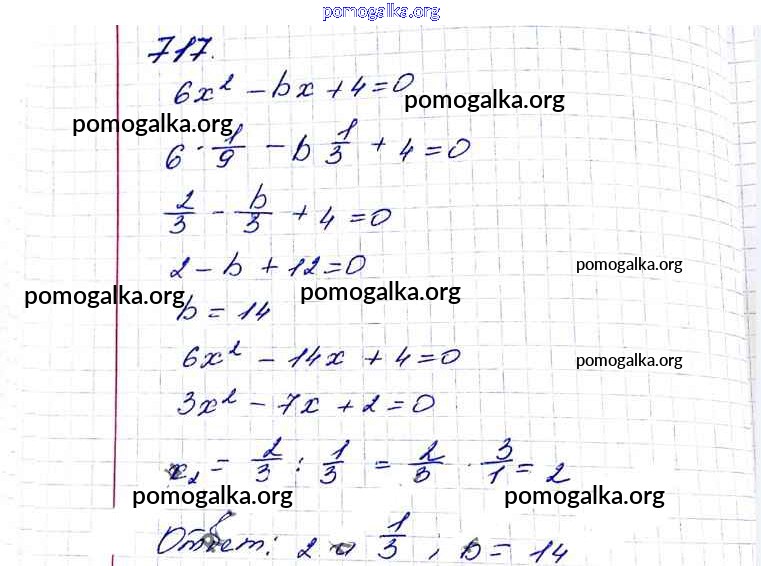 pomogalka.org
717.
6x² - bx + 4 = 0
pomogalka.org
pomogalka.org
6 · 1/9 - b 1/3 + 4 = 0
2/3 - b/3 + 4 = 0
2 - b + 12 = 0
pomogalka.org
pomogalka.org
pomogalka.org
b = 14
6x² - 14x + 4 = 0
pomogalka.org
3x² - 7x + 2 = 0
x₂ = 2/3 : 1/3 = 2/3 · 3/1 = 2
pomogalka.org
pomogalka.org
Ответ: 2 и 1/3 ; b = 14